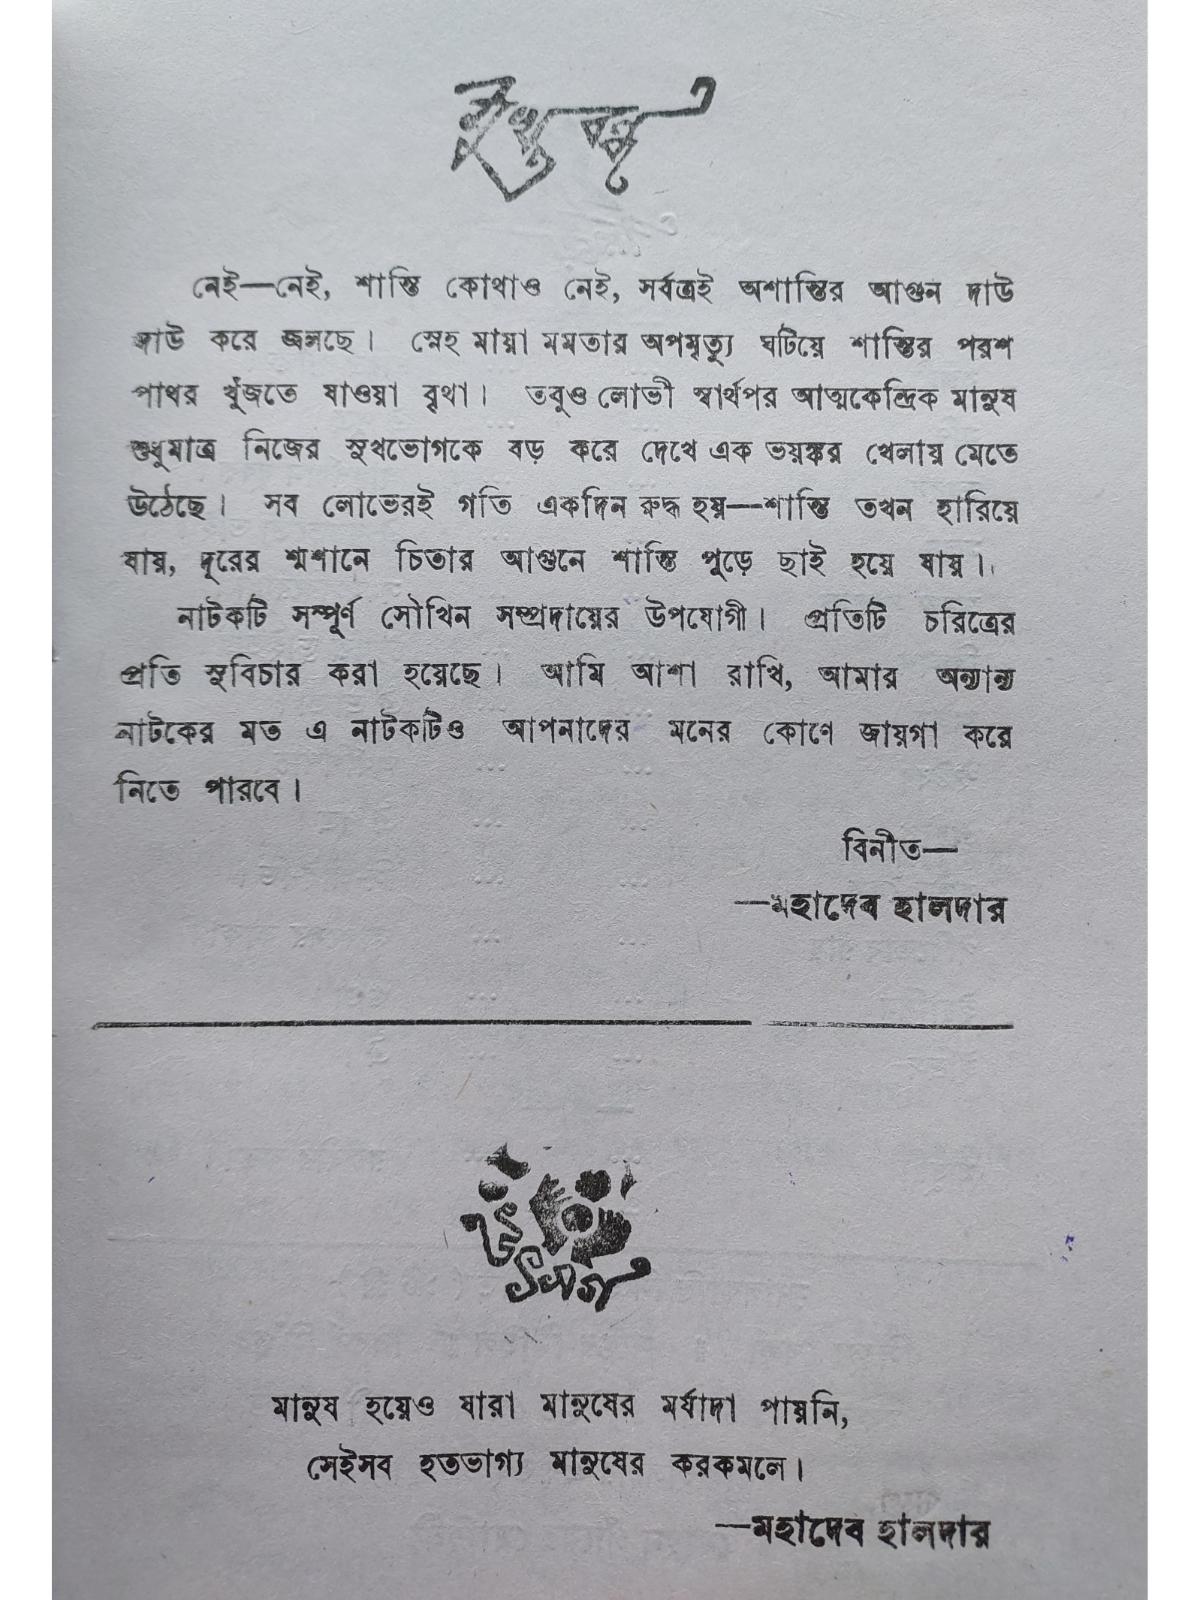 মুখবন্ধ
নেই—নেই, শান্তি কোথাও নেই, সর্বত্রই অশান্তির আগুন দাউ
দাউ করে জ্বলছে। স্নেহ মায়া মমতার অপমৃত্যু ঘটিয়ে শান্তির পরশ
পাথর খুঁজতে যাওয়া বৃথা। তবুও লোভী স্বার্থপর আত্মকেন্দ্রিক মানুষ
শুধুমাত্র নিজের সুখভোগকে বড় করে দেখে এক ভয়ঙ্কর খেলায় মেতে
উঠেছে। সব লোভেরই গতি একদিন রুদ্ধ হয়—শান্তি তখন হারিয়ে
যায়, দূরের শ্মশানে চিতার আগুনে শান্তি পুড়ে ছাই হয়ে যায়।
নাটকটি সম্পূর্ণ সৌখিন সম্প্রদায়ের উপযোগী। প্রতিটি চরিত্রের
প্রতি সুবিচার করা হয়েছে। আমি আশা রাখি, আমার অন্যান্য
নাটকের মত এ নাটকটিও আপনাদের মনের কোণে জায়গা করে
নিতে পারবে।
বিনীত—
—মহাদেব হালদার
উৎসর্গ
মানুষ হয়েও যারা মানুষের মর্যাদা পায়নি,
সেইসব হতভাগ্য মানুষের করকমলে।
—মহাদেব হালদার